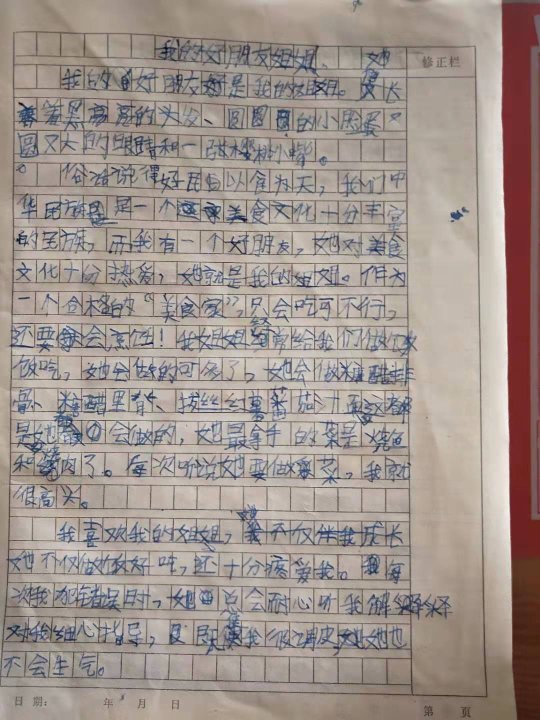 我的好朋友姐姐、 她
修正栏
我的好朋友是我的姐姐。 长
着黑 的头发、圆圆的小脸蛋又
圆又大的眼睛和一 甜樱桃小嘴。
俗话说得好民以食为天,我们中
华民族是一个 美食文化十分丰富
的民族,而我有一个好朋友,她对美食
文化十分热爱,她就是我的姐姐。作为
一个合格的“美食家”,只会吃可不行,
还要会烹饪!我姐姐经常给我们做饭
饭吃,她会做的可多了,她会做糖醋排
骨、糖醋里脊、拔丝红薯 茄汁面
是她 会做的,她最拿手的菜是烧鱼
和 肉了。每次听说她要做菜,我就
很高兴。
我喜欢我的姐姐, 不仅伴我成长
她不仅做饭好吃,还十分疼爱我。每
次我犯错误时,她总会耐心听我解释
对我细心指导, 我很调皮她也
不会生气。
日期: 年 月 日
第 页